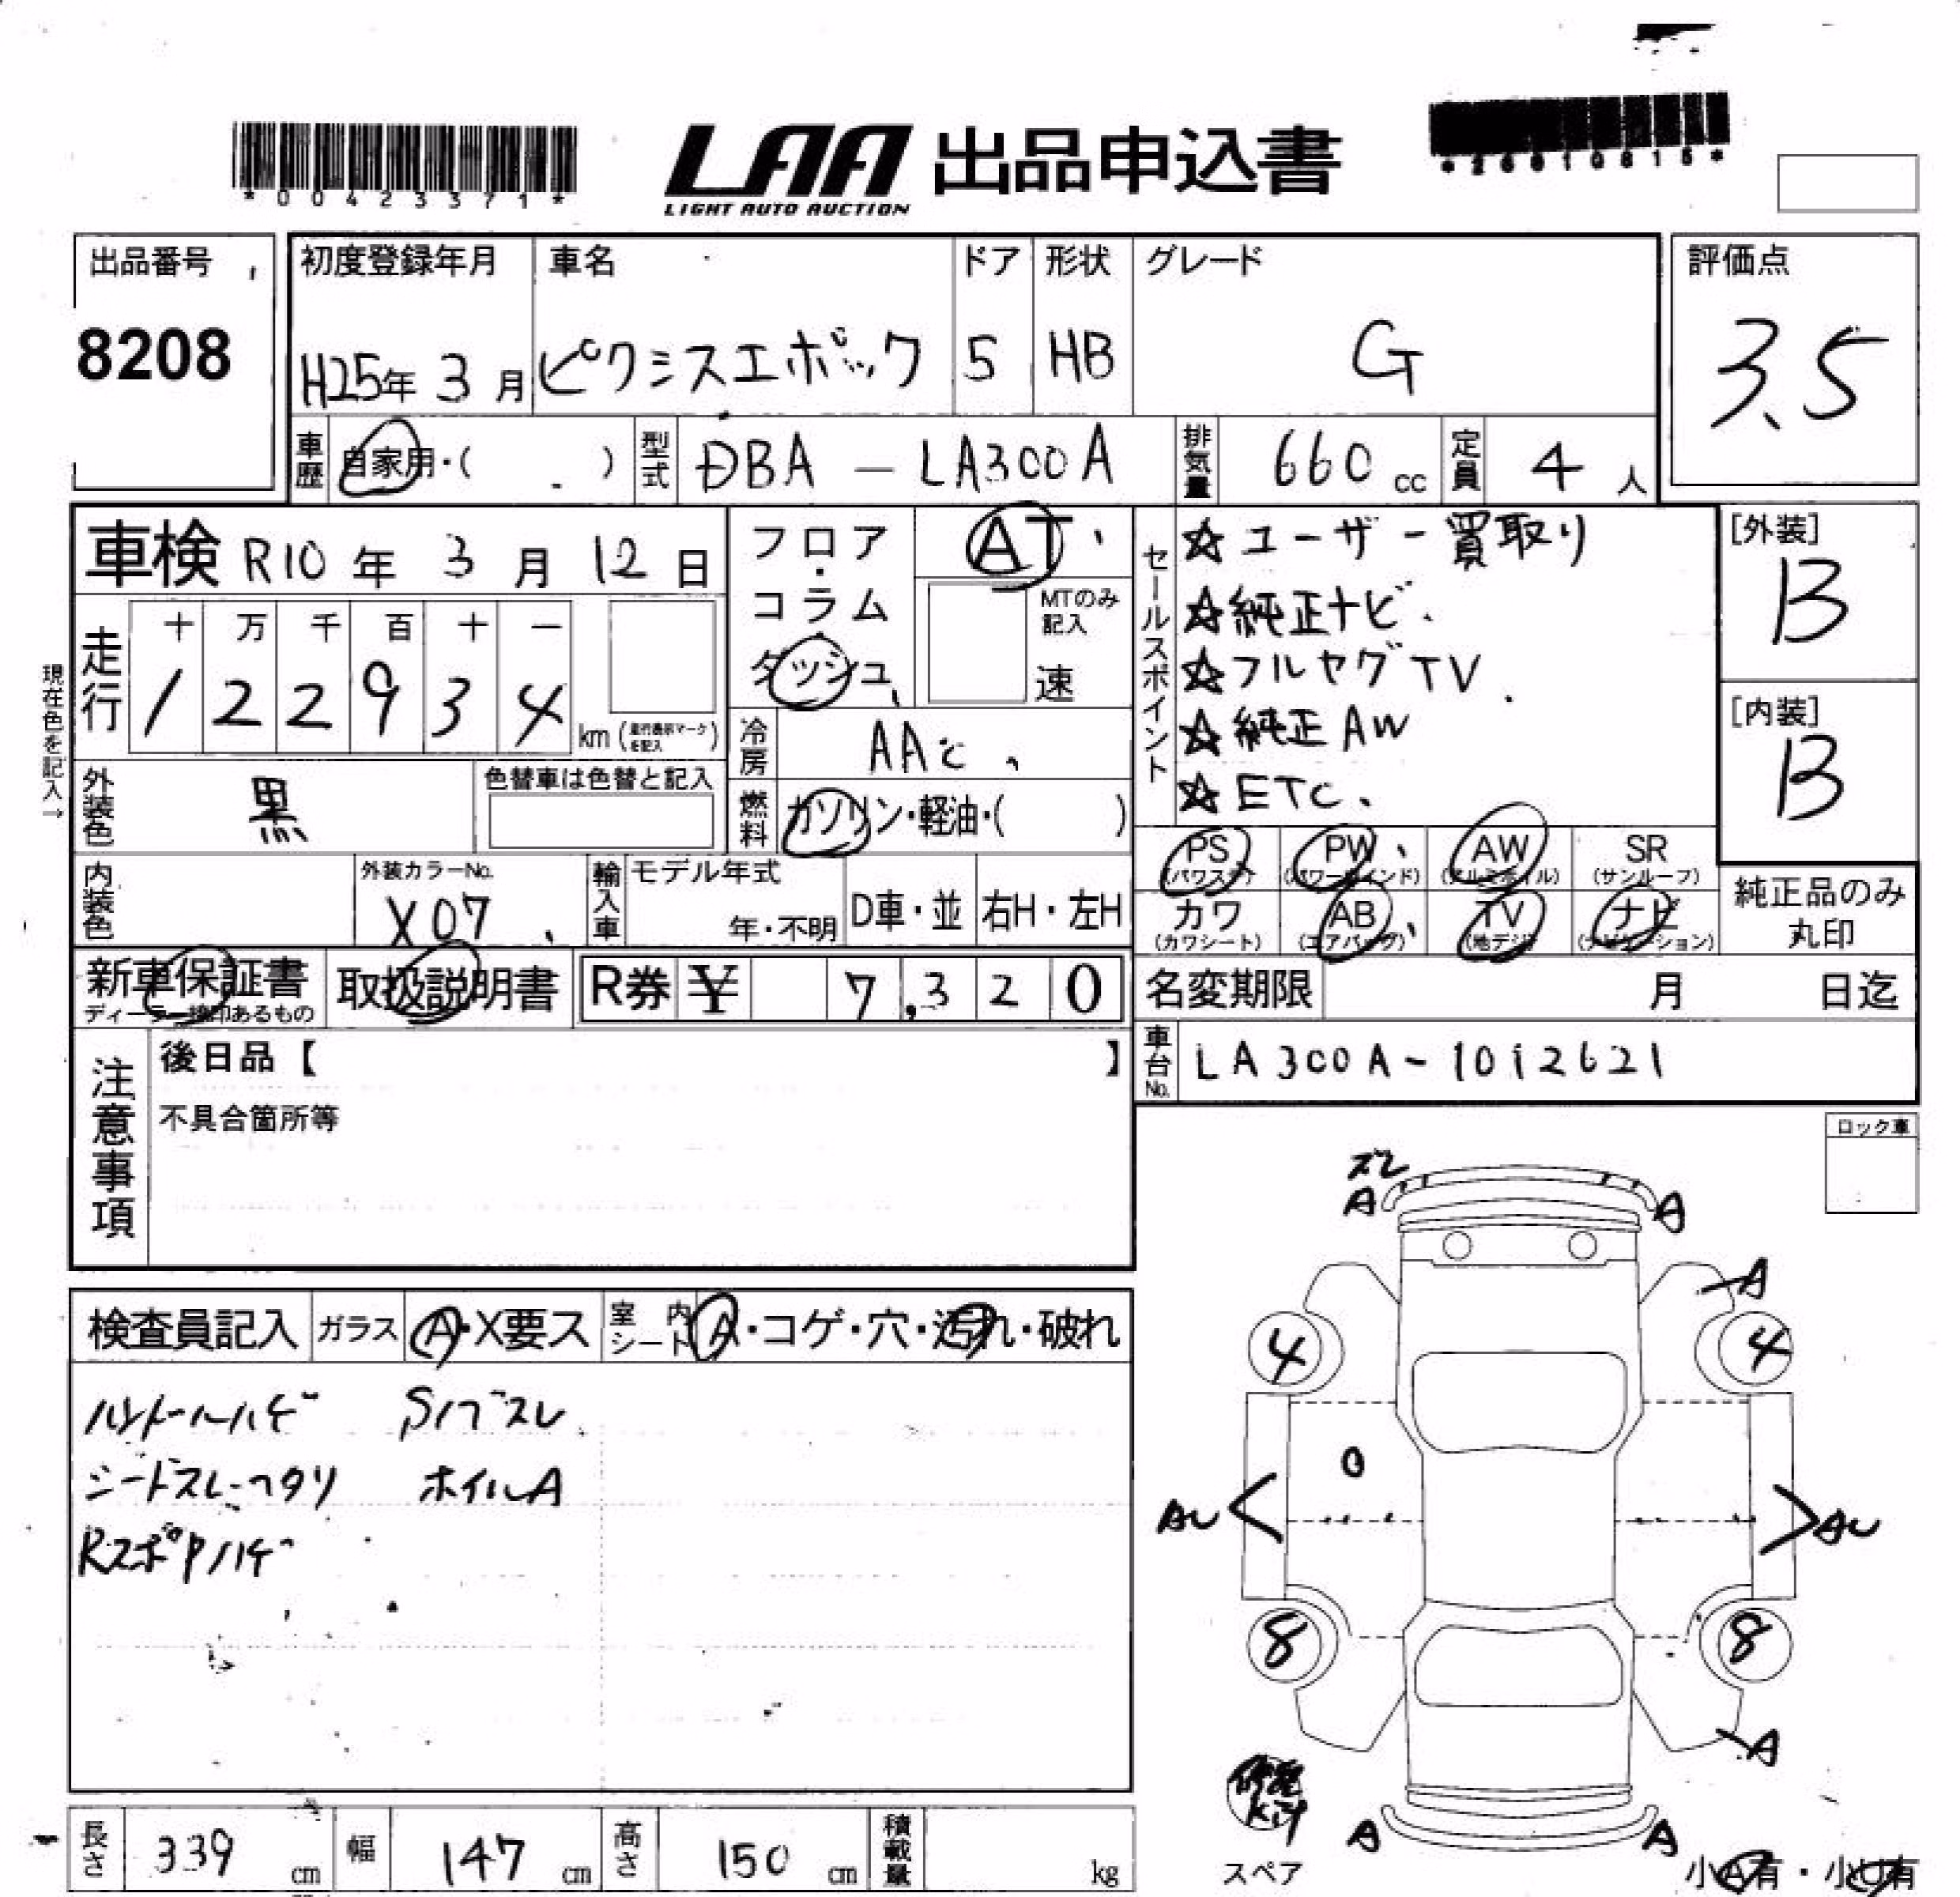 *00423371*
LAA 出品申込書
LIGHT AUTO AUCTION
*26010815*
出品番号
8208
初度登録年月 車名 ドア 形状 グレード
H25年 3月 ピクシスエポック 5 HB G
評価点
3.5
車歴 自家用・( ) 型式 DBA - LA300A 排気量 660 cc 定員 4 人
車検 R10 年 3 月 12 日
フロア・コラム ダッシュ
AT
MTのみ記入
速
現在色を記入→
走行 十 万 千 百 十 一
1 2 2 9 3 4 km (走行表示マークを記入)
冷房 AAC
外装色 黒 色替車は色替と記入
燃料 ガソリン・軽油・( )
内装色
外装カラーNo.
X07
輸入車 モデル年式
年・不明 D車・並 右H・左H
セールスポイント
☆ユーザー買取り
☆純正ナビ
☆フルセグTV
☆純正AW
☆ETC
[外装]
B
[内装]
B
PS PW AW SR
(パワステ) (パワーウインド) (アルミホイル) (サンルーフ)
カワ AB TV ナビ
(カワシート) (エアバッグ) (地デジ) (ナビゲーション)
純正品のみ
丸印
新車保証書 取扱説明書 R券 ¥ 7,320
ディーラー捺印あるもの
名変期限 月 日迄
車台No. LA300A-1012621
注意事項
後日品【 】
不具合箇所等
ロック車
検査員記入 ガラス A・X要ス 室内シート A・コゲ・穴・汚れ・破れ
ハンドルハゲ
シートスレ
ホイルA
ズレ
A A
A
4 4
AU AU
8 8
A
A A
修理kit
スペア
小A有・小U有
長さ 339 cm 幅 147 cm 高さ 150 cm 積載量 kg